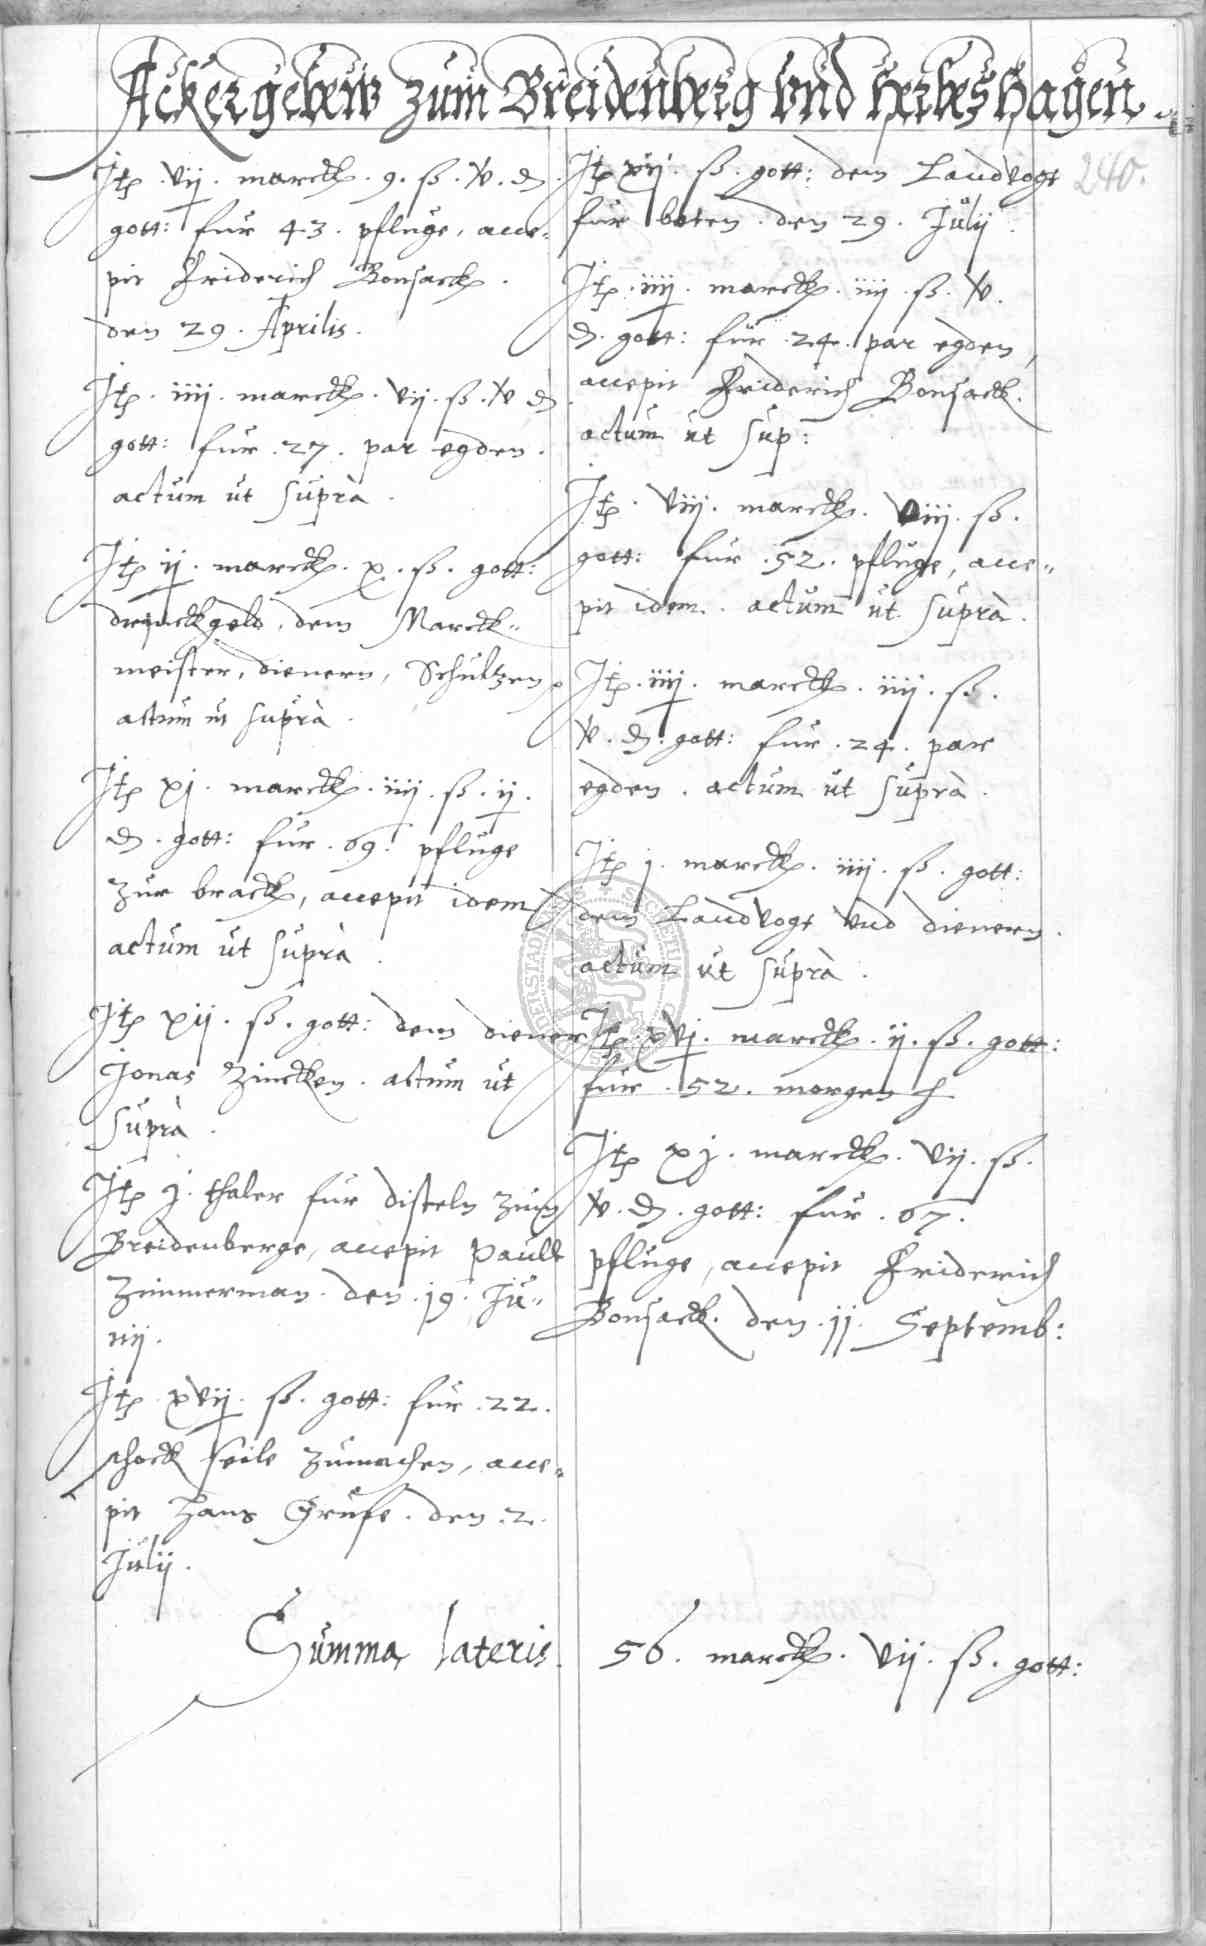 Ackergebew zum Breidenberg vnd Herbeshagen.
240.
Itp. vij. marck. 9. ß. v. d.
gott: fur 43. pfluge, acce„
pit Friderich Bonsack.
den 29. Aprilis.
Itp. iiij. marck. vij. ß. v d
gott: fur .27. par egden.
actum ut suprà.
Itp ij. marck. x. ß. gott:
drinckgeld, dem Marck„
meister, dienern, Schultzen
actum ut suprà.
Itp xj. marck. iiij. ß. ij.
d. gott: fur .69. pfluge
zur brack, accepit idem
actum ut suprà.
Itp xij. ß. gott: dem diener
Jonas Zincken. actum ut
suprà.
Itp j. thaler fur disteln zum
Breidenberge, accepit Paull
Zimmerman. den .19. Ju„
nij.
Itp. xvij. ß. gott: fur .22.
schock seile zumachen, acce„
pit Hans Grufe. den .2.
Julij.
Itp xij. ß. gott: dem Landvogt
fur boten. den 29. Julij.
Itp. iiij. marck. iiij. ß. v.
d. gott: fur .24. par egden,
accepit Friderich Bonsack.
actum ut sup:
Itp. viij. marck. viij. ß.
gott: fur .52. pfluge, acce„
pit idem. actum ut suprà.
Itp. iiij. marck. iiij. ß.
v. d. gott: fur .24. par
egden. actum ut suprà.
Itp j. marck. iiij. ß. gott:
dem Landvogt vnd dienern.
actum ut suprà.
Itp. xvj. marck. ij. ß. gott:
fur .52. morgen
Itp xj. marck. vij. ß.
v. d. gott: fur .67.
pfluge, accepit Friderich
Bonsack. den .11. Septemb:
Summa lateris. 56. marck. vij. ß. gott: